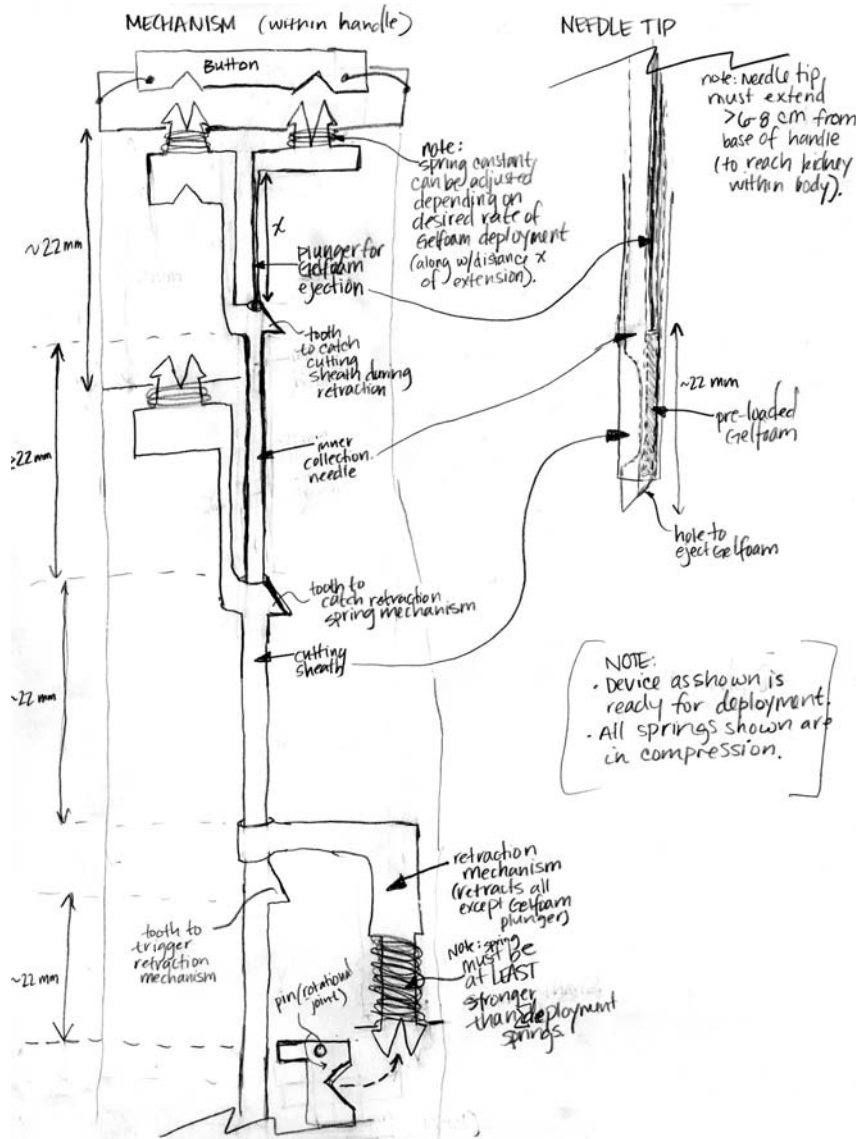 MECHANISM (within handle)
Button
~22 mm
x
plunger for
Gelfoam
ejection
note:
spring constant
can be adjusted
depending on
desired rate of
Gelfoam deployment
(along w/distance x
of extension).
tooth
to catch
cutting
sheath during
retraction
~22 mm
inner
collection
needle
tooth to
catch retraction
spring mechanism
cutting
sheath
~22 mm
retraction
mechanism
(retracts all
except Gelfoam
plunger)
tooth to
trigger
retraction
mechanism
Note: spring
must be
at LEAST
stronger
than Σ deployment
springs.
~22 mm
pin (rotational
joint)
NEEDLE TIP
note: Needle tip
must extend
>6-8 cm from
base of handle
(to reach kidney
within body).
~22 mm
pre-loaded
Gelfoam
hole to
eject Gelfoam
NOTE:
· Device as shown is
ready for deployment.
· All springs shown are
in compression.